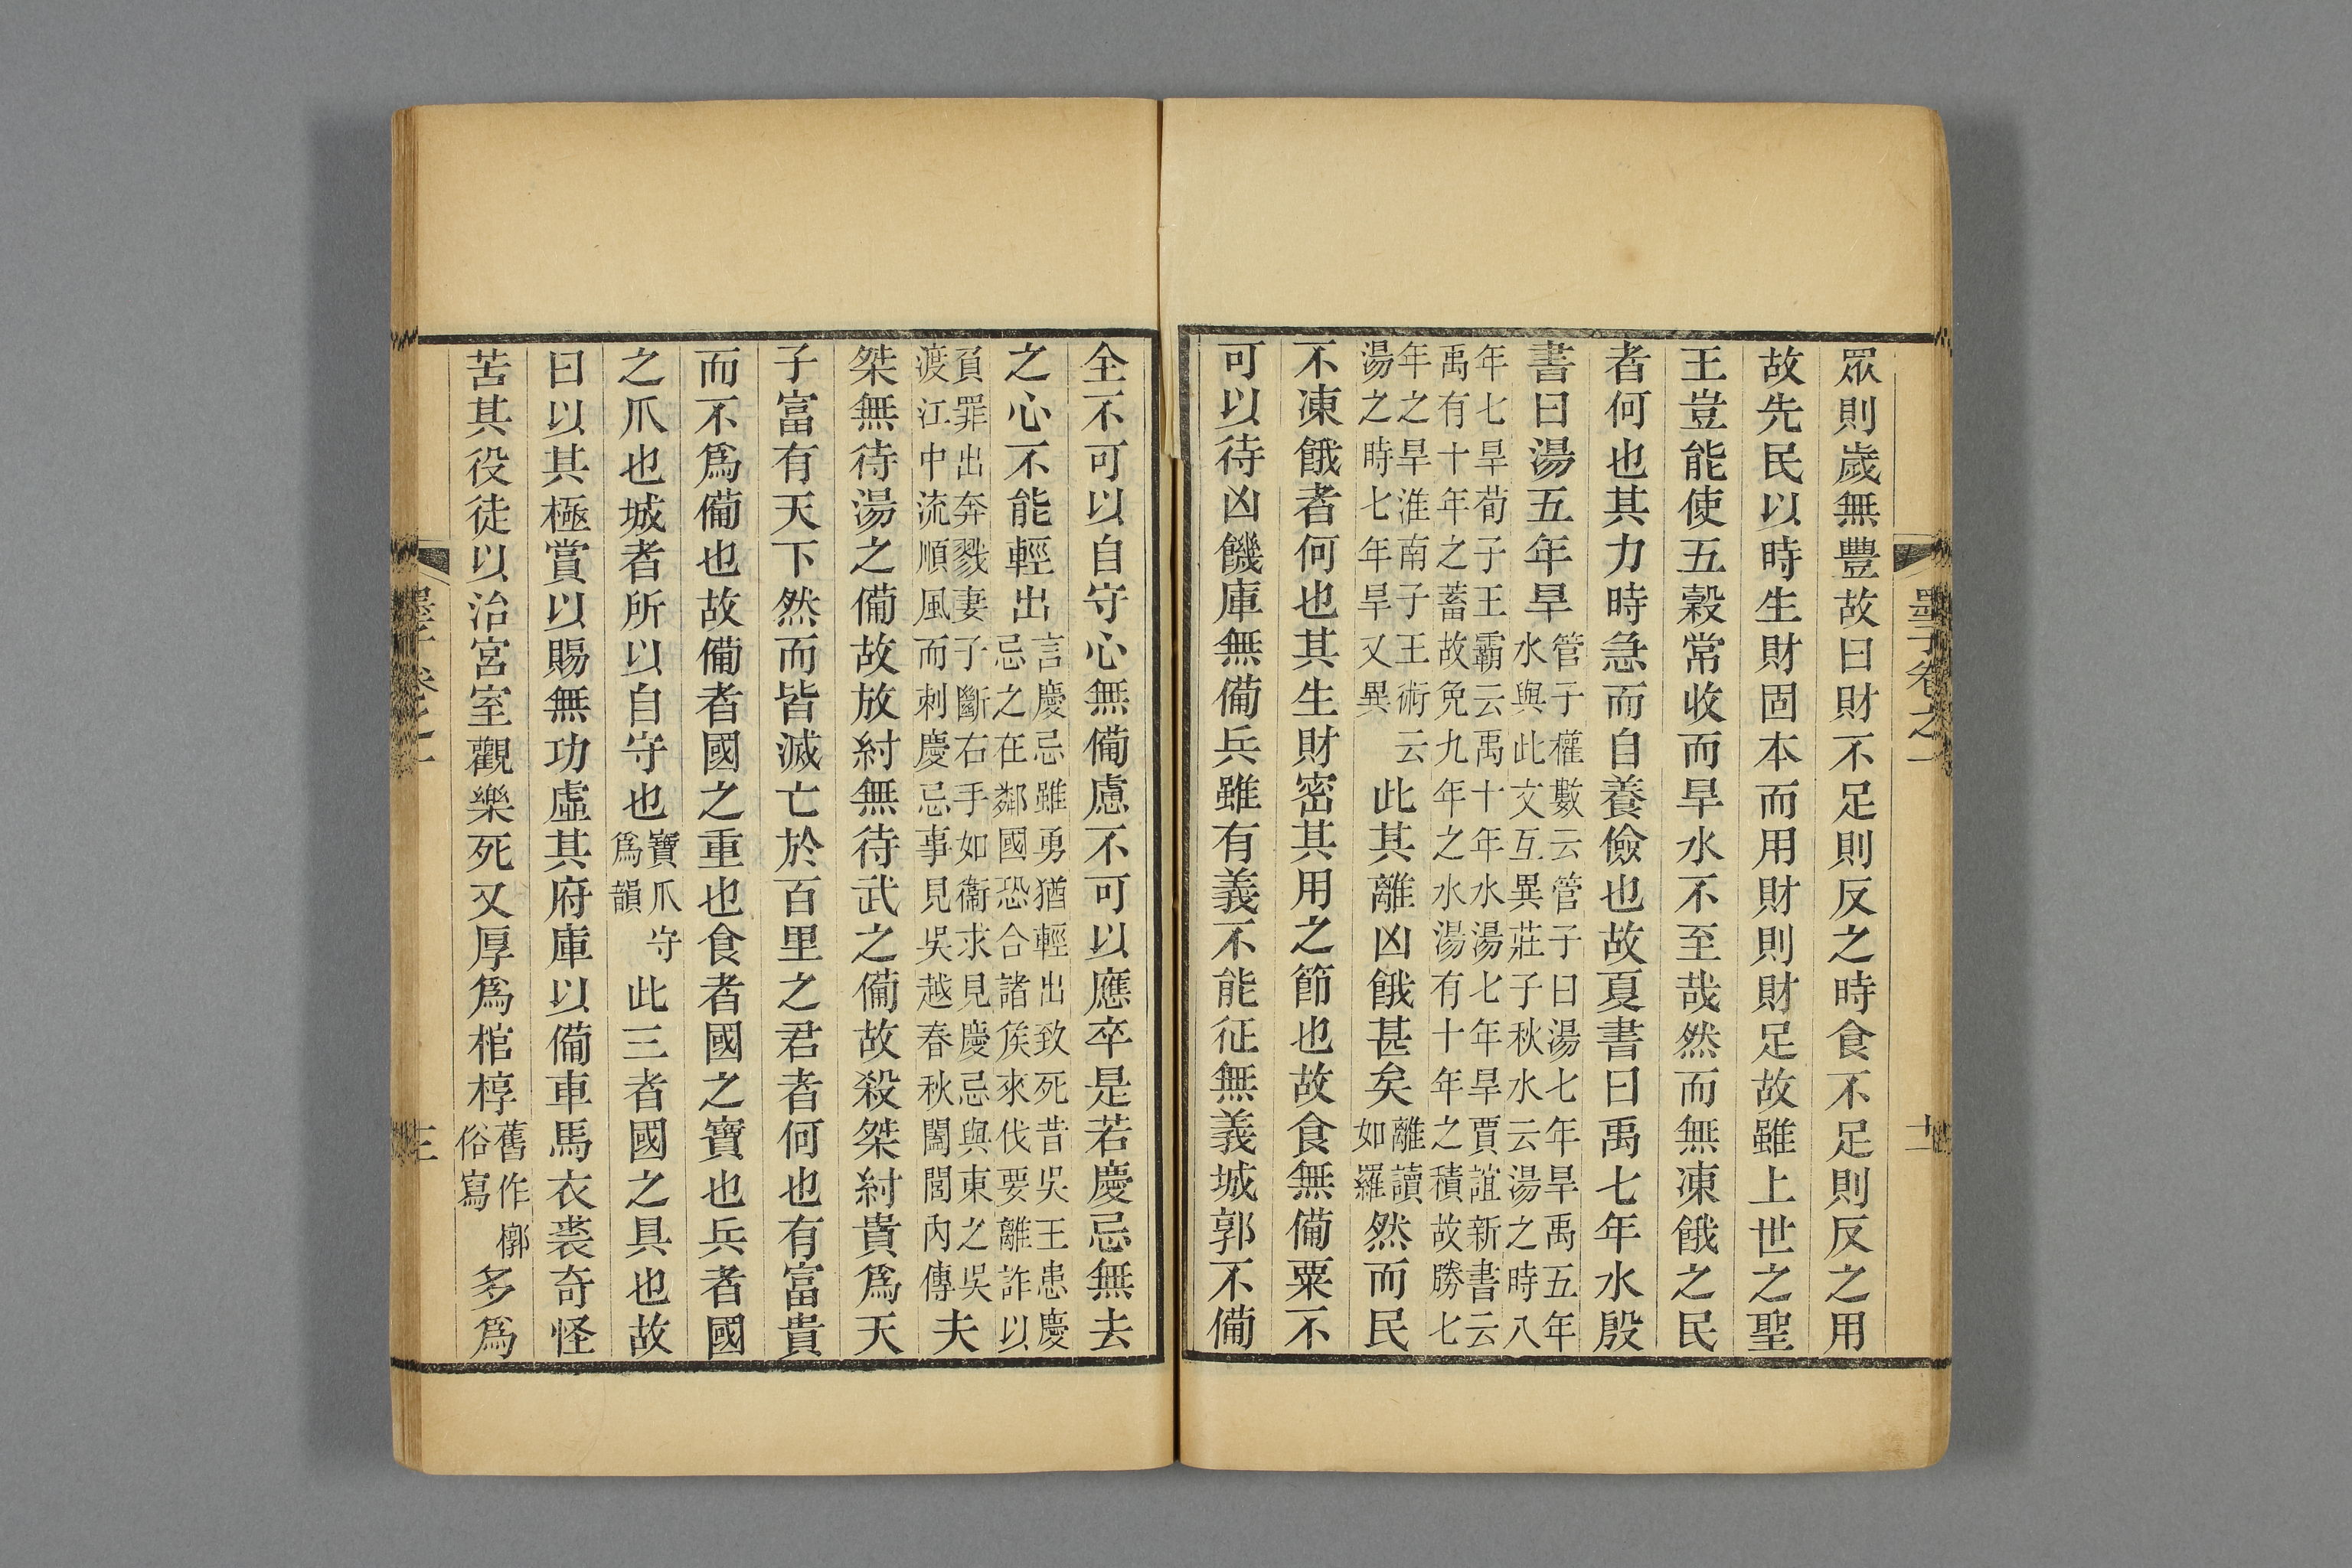 墨子卷之一
十二
眾則歲無豐故曰財不足則反之時食不足則反之用
故先民以時生財固本而用財則財足故雖上世之聖
王豈能使五穀常收而旱水不至哉然而無凍餓之民
者何也其力時急而自養儉也故夏書曰禹七年水殷
書曰湯五年旱管子權數云管子曰湯七年旱禹五年
水與此文互異莊子秋水云湯之時八
年七旱荀子王霸云禹十年水湯七年旱賈誼新書云
禹有十年之蓄故免九年之水湯有十年之積故勝七
年之旱淮南子王術云
湯之時七年旱又異此其離凶餓甚矣離讀
如羅然而民
不凍餓者何也其生財密其用之節也故食無備粟不
可以待凶饑庫無備兵雖有義不能征無義城郭不備
全不可以自守心無備慮不可以應卒是若慶忌無去
之心不能輕出言慶忌雖勇猶輕出致死昔吳王患慶
忌之在鄰國恐合諸矦來伐要離詐以
負罪出奔戮妻子斷右手如衞求見慶忌與東之吳
渡江中流順風而刺慶忌事見吳越春秋闔閭內傳夫
桀無待湯之備故放紂無待武之備故殺桀紂貴爲天
子富有天下然而皆滅亡於百里之君者何也有富貴
而不爲備也故備者國之重也食者國之寶也兵者國
之爪也城者所以自守也寶爪守
爲韻此三者國之具也故
曰以其極賞以賜無功虛其府庫以備車馬衣裘奇怪
苦其役徒以治宮室觀樂死又厚爲棺椁舊作槨
俗寫多爲
墨子卷之一